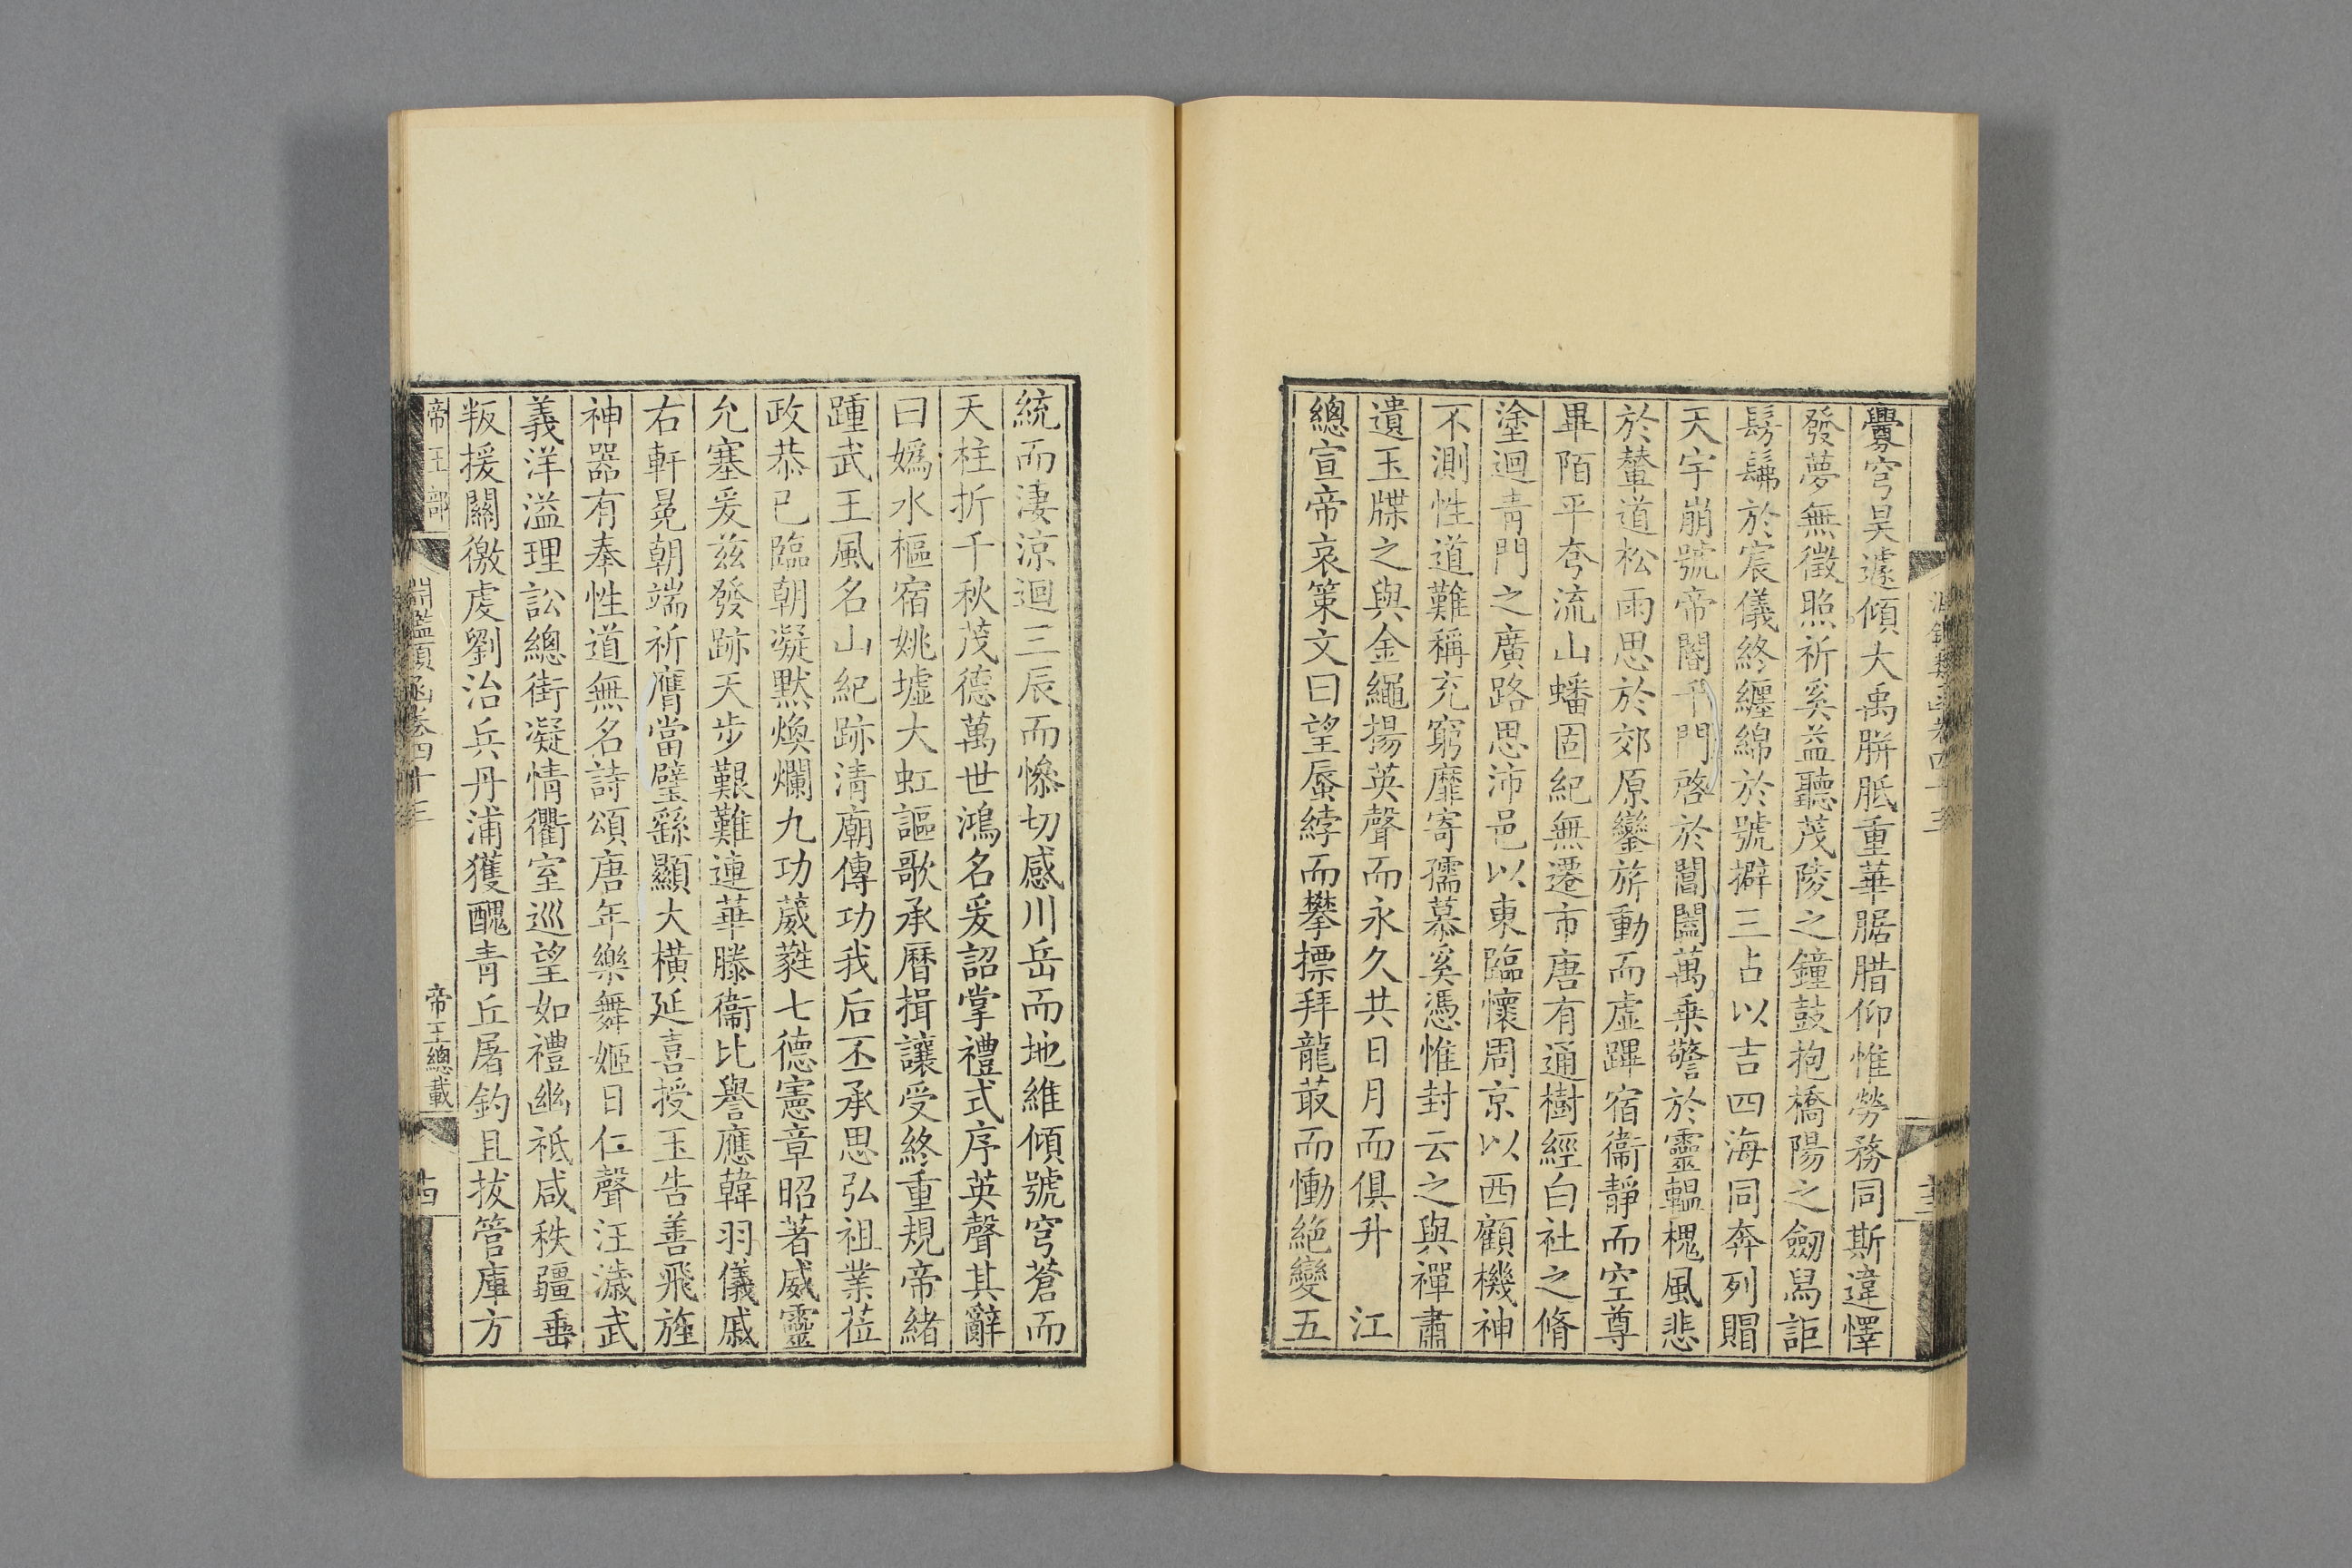 釁穹昊遽傾大禹胼胝重華腒腊仰惟勞務同斯違懌
發夢無徵照祈奚益聽茂陵之鐘鼓抱橋陽之劒舄詎
髣髴於宸儀終纏綿於號擗三占以吉四海同奔列賵
天宇崩號帝閽千門啓於閶闔萬乗警於靈轀槐風悲
於輦道松雨思於郊原鑾旂動而虛蹕宿衞靜而空尊
畢陌平夸流山蟠固紀無遷市唐有通樹經白社之脩
塗迴青門之廣路思沛邑以東臨懷周京以西顧機神
不測性道難稱充窮靡寄孺慕奚憑惟封云之與禪肅
遺玉牒之與金繩揚英聲而永久共日月而俱升 江
總宣帝哀策文曰望蜃綍而攀摽拜龍菆而慟絶變五
統而淒涼迴三辰而慘切感川岳而地維傾號穹蒼而
天柱折千秋茂德萬世鴻名爰詔掌禮式序英聲其辭
曰嬀水樞宿姚墟大虹謳歌承曆揖讓受終重規帝緒
踵武王風名山紀跡清廟傳功我后丕承思弘祖業莅
政恭已臨朝凝默煥爛九功葳蕤七德憲章昭著威靈
允塞爰兹發跡天步艱難連華滕衞比譽應韓羽儀戚
右軒冕朝端祈膺當璧繇顯大橫延喜授玉告善飛旌
神器有奉性道無名詩頌唐年樂舞姬日仁聲汪濊武
義洋溢理訟總街凝情衢室巡望如禮幽祇咸秩疆垂
叛援關徼虔劉治兵丹浦獲醜青丘屠釣且拔管庫方
帝王部
淵鑑類函卷四十三
帝王總載
十四